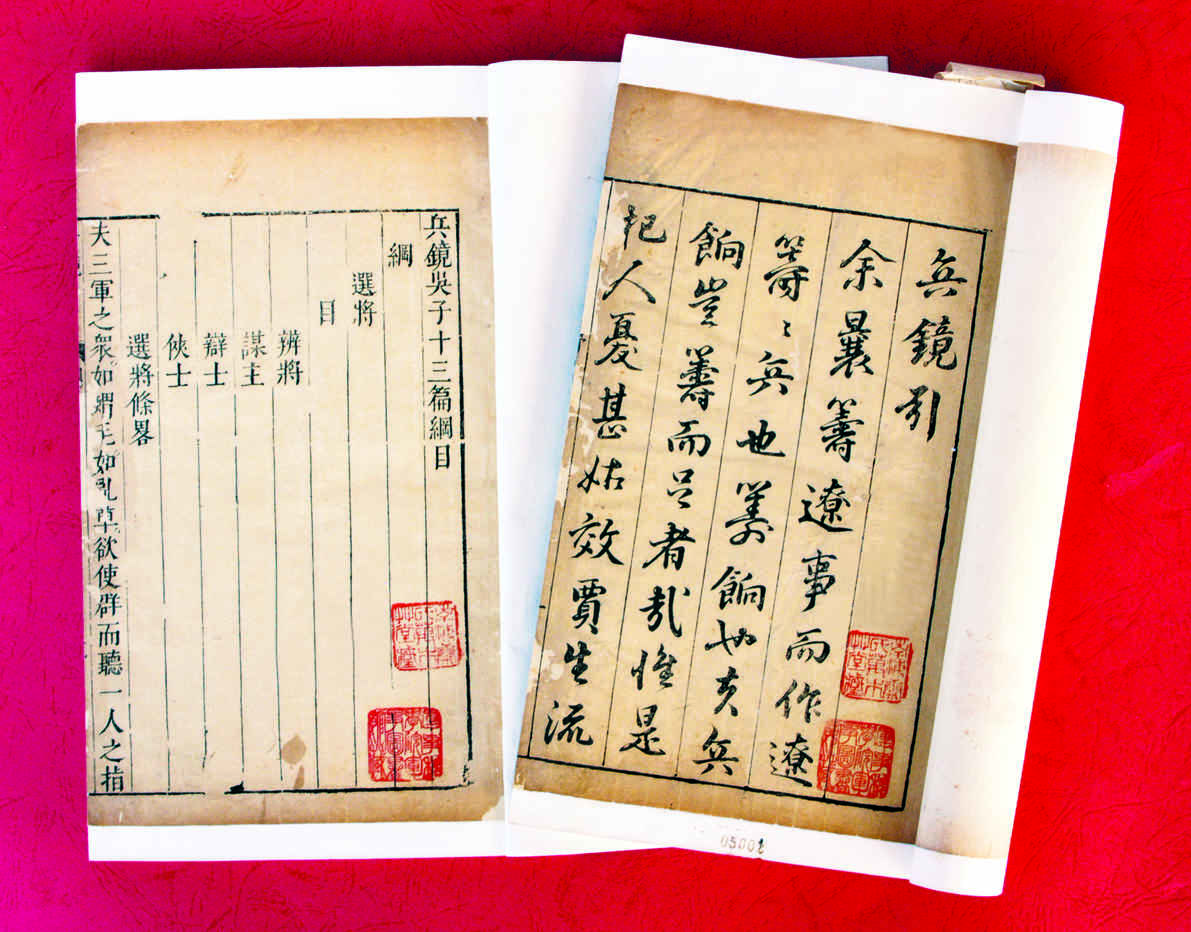 兵鏡引
余曩籌遼事而作遼
籌籌兵也籌餉也夫兵
餉豈籌而已者哉惟是
杞人憂甚姑效賈生流
兵鏡吳子十三篇綱目
綱
選將
目
辨將
謀主
辯士
俠士
選將條畧
夫三軍之眾如蝟毛如亂草欲使群而聽一人之指
05001